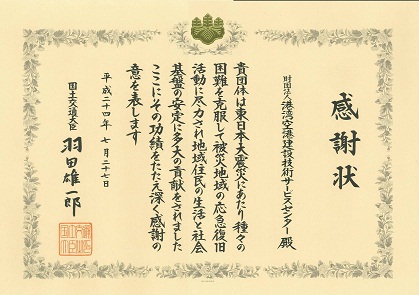 感謝状
財団法人 港湾空港建設技術サービスセンター 殿
貴団体は東日本大震災にあたり種々の
困難を克服して被災地域の応急復旧
活動に尽力され地域住民の生活と社会
基盤の安定に多大の貢献をされました
ここにその功績をたたえ深く感謝の
意を表します
平成二十四年 七月二十七日
国土交通大臣 羽田雄一郎